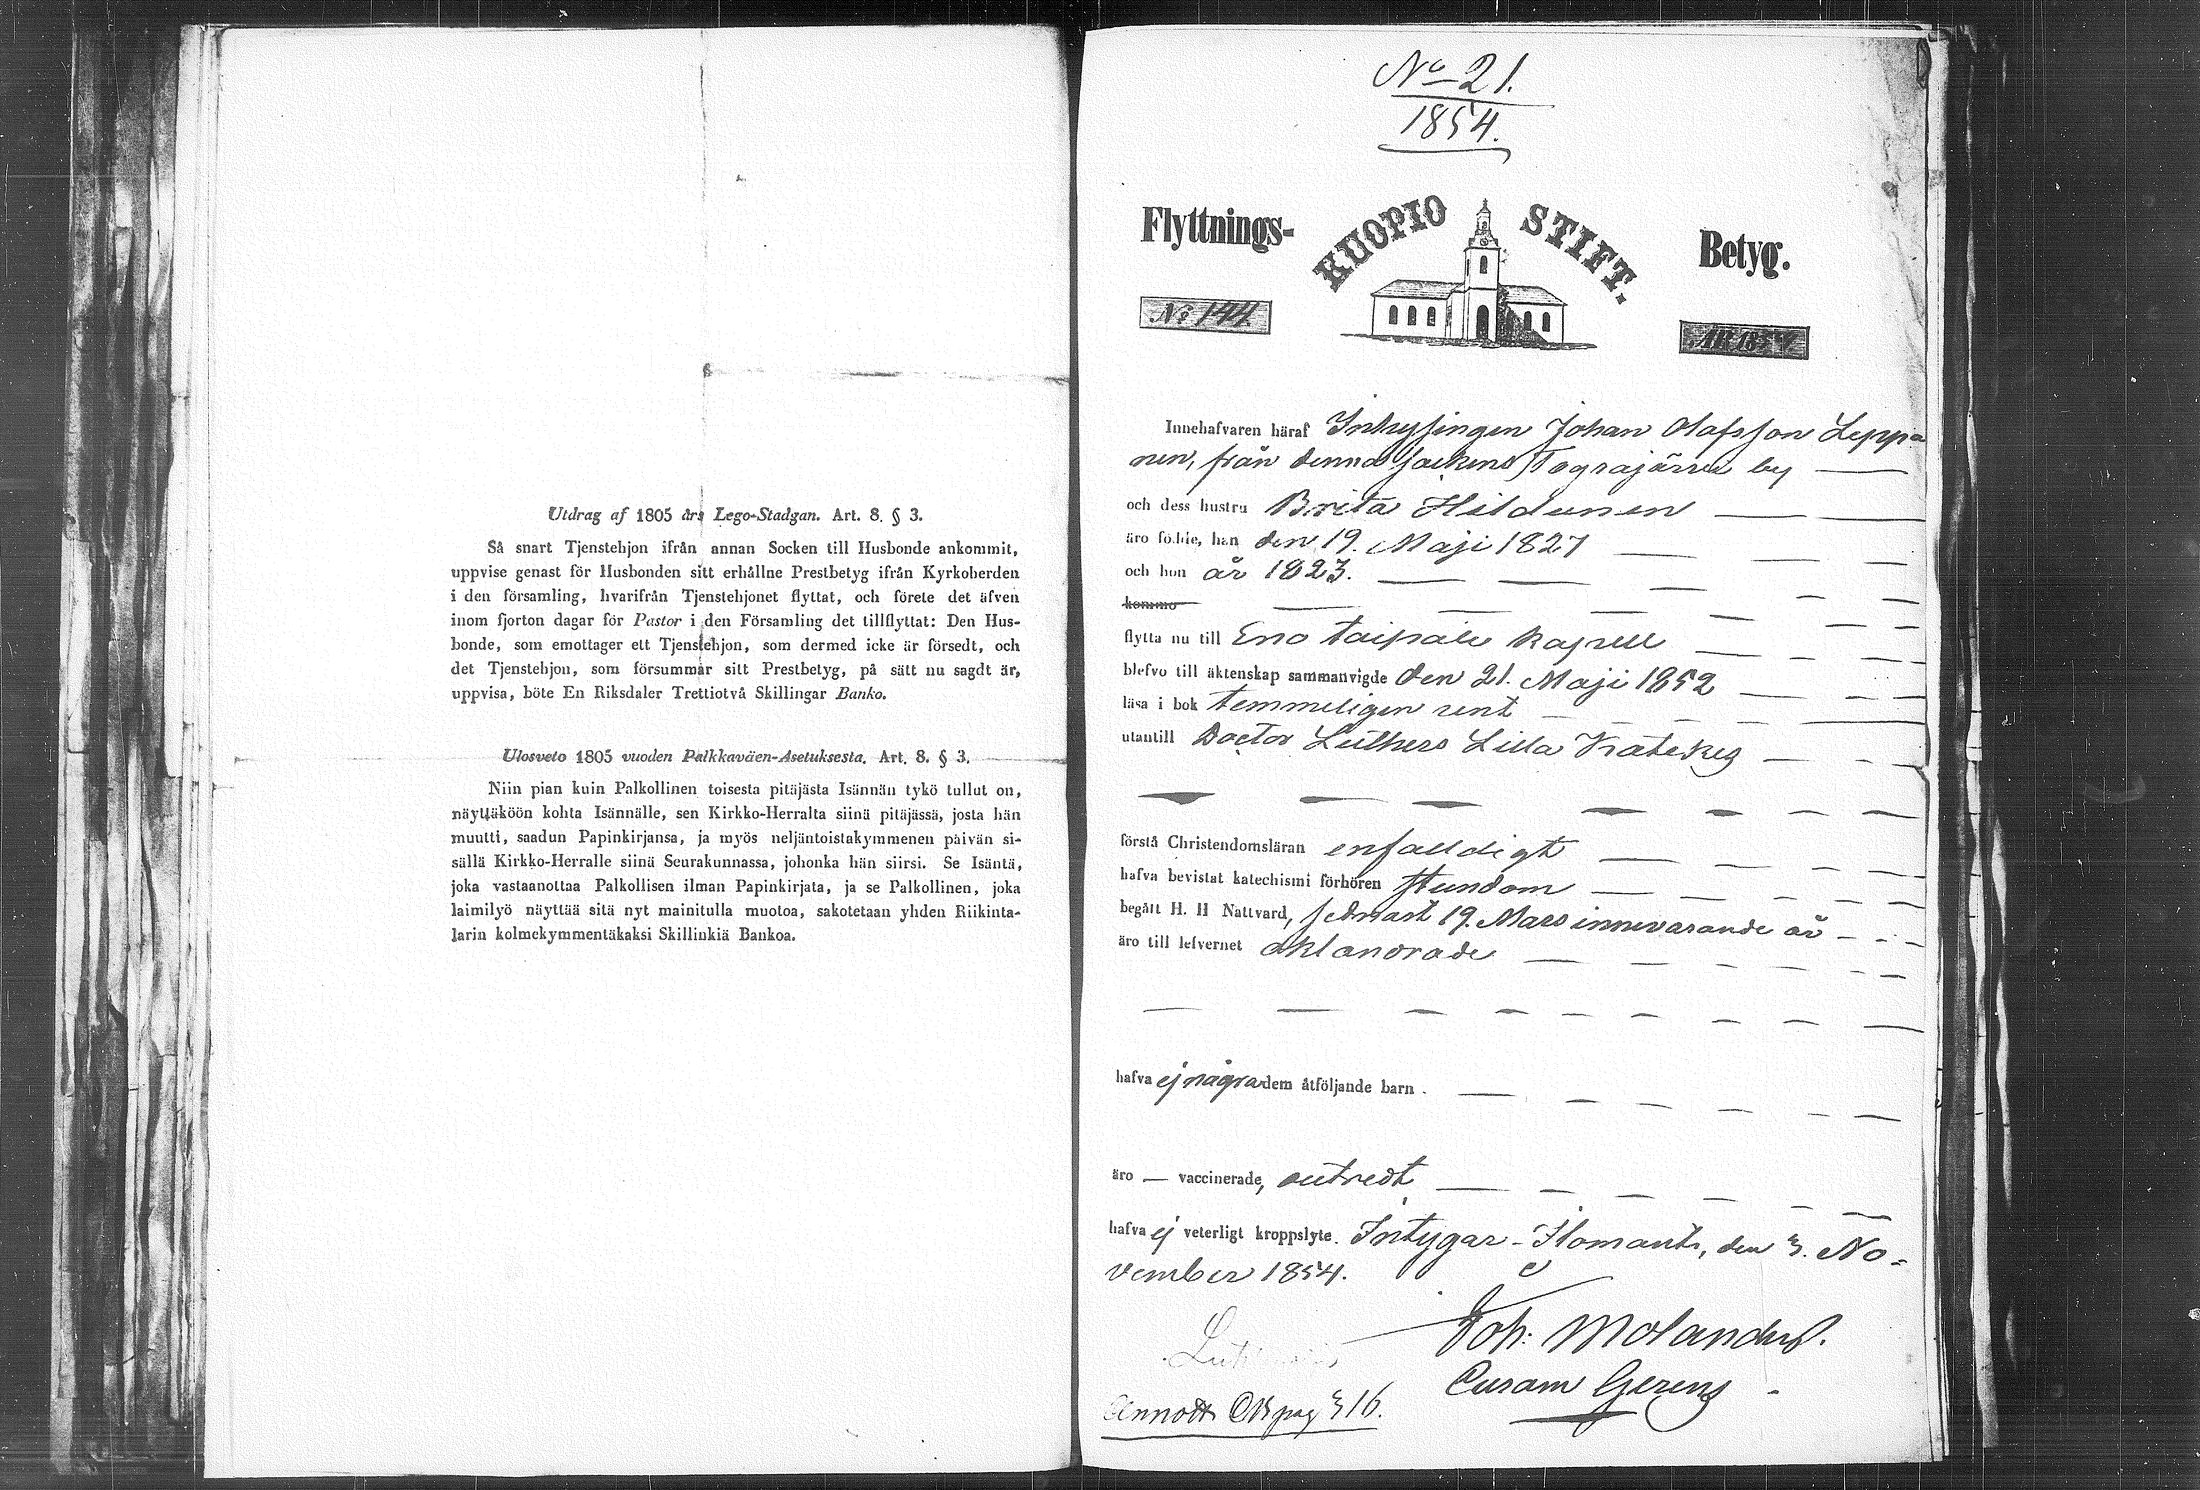 Utdrag af 1805 års Lego-Stadgan. Art. 8. § 3.
Så snart Tjenstehjon ifrån annan Socken till Husbonde ankommit,
uppvise genast för Husbonden sitt erhållne Prestbetyg ifrån Kyrkoherden
i den församling, hvarifrån Tjenstehjonet flyttat, och förete det äfven
inom fjorton dagar för Pastor i den Församling det tillflyttat: Den Hus-
bonde, som emottager ett Tjenstehjon, som dermed icke är försedt, och
det Tjenstehjon, som försummar sitt Prestbetyg, på sätt nu sagdt är,
uppvisa, böte En Riksdaler Trettiotvå Skillingar Banko.
Ulosveto 1805 vuoden Palkkaväen-Asetuksesta. Art. 8. § 3.
Niin pian kuin Palkollinen toisesta pitäjästa Isännän tykö tullut on,
näyttäköön kohta Isännälle, sen Kirkko-Herralta siinä pitäjässä, josta hän
muutti, saadun Papinkirjansa, ja myös neljäntoistakymmenen päivän si-
sällä Kirkko-Herralle siinä Seurakunnassa, johonka hän siirsi. Se Isäntä,
joka vastaanottaa Palkollisen ilman Papinkirjata, ja se Palkollinen, joka
laimilyö näyttää sitä nyt mainitulla muotoa, sakotetaan yhden Riikinta-
larin kolmekymmentäkaksi Skillinkiä Bankoa.
No 21.
1854.
Flyttnings- KUOPIO STIFT. Betyg.
No 144
ÅR 1854
Innehafvaren häraf Inhysingen Johan Olafsson Leppä
nen, från denna sockens Tograjärvi by
och dess hustru Brita Hildunen
äro födde, han den 19. Maji 1827
och hon år 1823.
komma
flytta nu till Eno Taipale Kapell
blefvo till äktenskap sammanvigde den 21. Maji 1852
läsa i bok temmeligen rent
utantill Doctor Luthers Lilla Kateches
förstå Christendomsläran enfalldigt
hafva bevistat katechismi förhören stundom
begått H. H Nattvard, sednast 19. Mars innevarande år
äro till lefvernet oklandrade
hafva ej några dem åtföljande barn.
äro — vaccinerade, outredt
hafva ej veterligt kroppslyte. Intygar - Ilomants, den 3. No-
vember 1854.
Joh: Molander.
Curam Gerens
Annott CB pag 316.